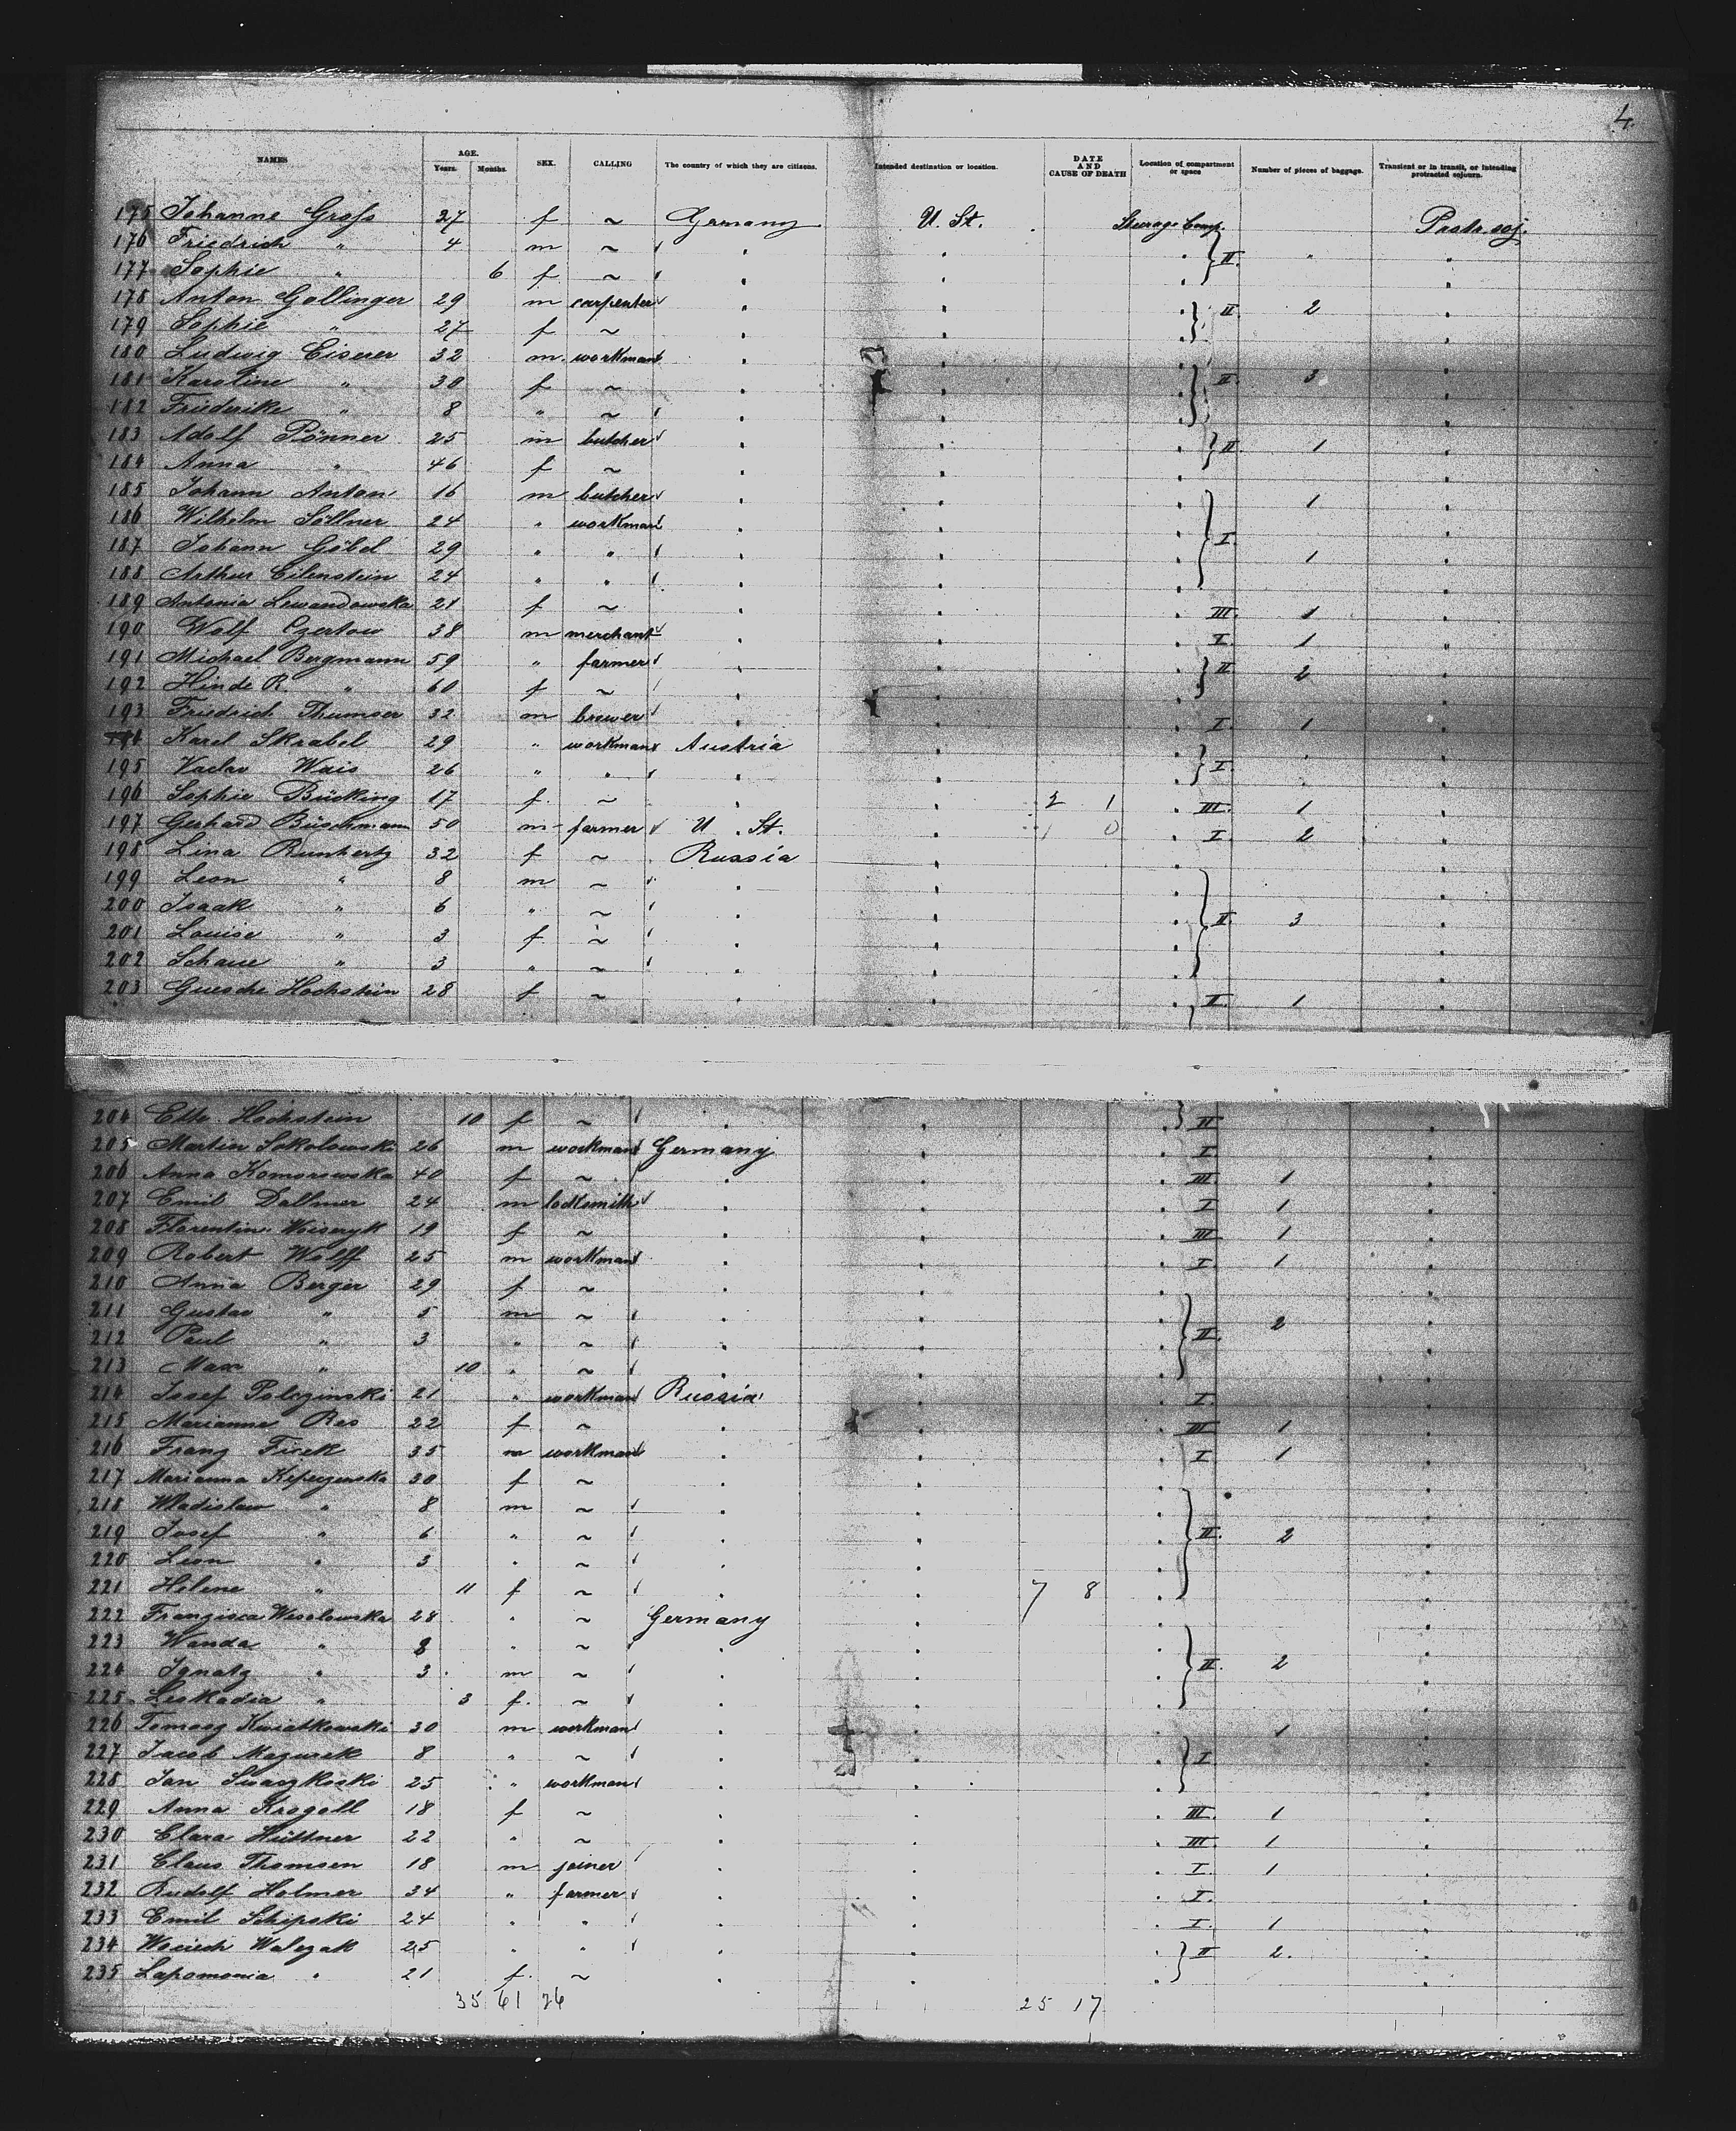 4.
NAMES AGE. Years. Months. SEX. CALLING The country of which they are citizens. Intended destination or location. DATE AND CAUSE OF DEATH Location of compartment or space Number of pieces of baggage. Transient or in transit, or intending protracted sojourn.
175 Johanne Gross 27 f ~ Germany U. St. Steerage Comp. Protr. soj.
176 Friedrich " 4 m ~ " " II. " "
177 Sophie " 6 f ~ " "
178 Anton Gollinger 29 m carpenter " " II. 2 "
179 Sophie " 27 f ~ " "
180 Ludwig Eiserer 32 m. workman " "
181 Karoline " 30 f ~ " " II. 3 "
182 Friederike " 8 " ~ " "
183 Adolf Pönner 25 m butcher " " II. 1 "
184 Anna " 46 f ~ " "
185 Johann Anton 16 m butcher " " 1 "
186 Wilhelm Söllner 24 " workman " " I.
187 Johann Göbel 29 " " " " 1 "
188 Arthur Eilenstein 24 " " " "
189 Antonia Lewandowska 21 f ~ " " III. 1 "
190 Wolf 38 m merchant " " I. 1 "
191 Michael Bergmann 59 " farmer " " II. 2 "
192 Hinde R. " 60 f ~ " "
193 Friedrich Thumser 32 m brewer " " I. 1 "
194 Karel Skrabel 29 " workman Austria "
195 Vaclav Wais 26 " " " " I. "
196 Sophie Bücking 17 f. ~ " " 2 1 III. 1 "
197 Gerhard Büschmann 50 m farmer U. St. " 1 0 I. 2 "
198 Lina 32 f ~ Russia "
199 Leon " 8 m ~ " "
200 Isaak " 6 " ~ " " II. 3 "
201 Louise " 3 f ~ " "
202 Schaue " 3 " ~ " "
203 Guesche Hochstein 28 f ~ " " II. 1 "
204 Ette Hochstein 10 f ~ " " II "
205 Martin Sokolowski 26 m workman Germany " I. "
206 Anna Komorowska 40 f ~ " " III. 1 "
207 Emil Dallmer 24 m locksmith " " I. 1 "
208 19 f ~ " " III. 1 "
209 Robert Wolff 25 m workman " " I. 1 "
210 Anna Berger 29 f ~ " "
211 Gustav " 5 m ~ " " 2 "
212 Paul " 3 " ~ " " II.
213 Max " 10 " ~ " "
214 Josef Polczinski 21 " workman Russia " I. "
215 Marianne Res 22 f ~ " " III. 1 "
216 Franz Ficek 35 m workman " " I. 1 "
217 Marianna 30 f ~ " "
218 Wladislaw " 8 m ~ " "
219 Josef " 6 " ~ " " II. 2 "
220 Leon " 3 " ~ " "
221 Helene " 11 f ~ " " 7 8
222 Franzisca Wesolowska 28 " ~ Germany "
223 Wanda " 8 " ~ " "
224 Ignatz " 3 m ~ " " II. 2 "
225 Leokadia " 3 f. ~ " "
226 Tomasz Kwiatkowski 30 m workman " " 1 "
227 Jacob Mazurek 8 " ~ " " I
228 Jan 25 " workman " "
229 Anna Krogoll 18 f ~ " " III. 1 "
230 Clara Hüttner 22 " ~ " " III. 1 "
231 Claus Thomsen 18 m joiner " " I. 1 "
232 Rudolf Holmer 34 " farmer " " I. "
233 Emil Schipski 24 " " " " I. 1 "
234 Wociech Walczak 25 " " " " II 2. "
235 Lapomonia " 21 f. ~ " "
35 61 26 25 17